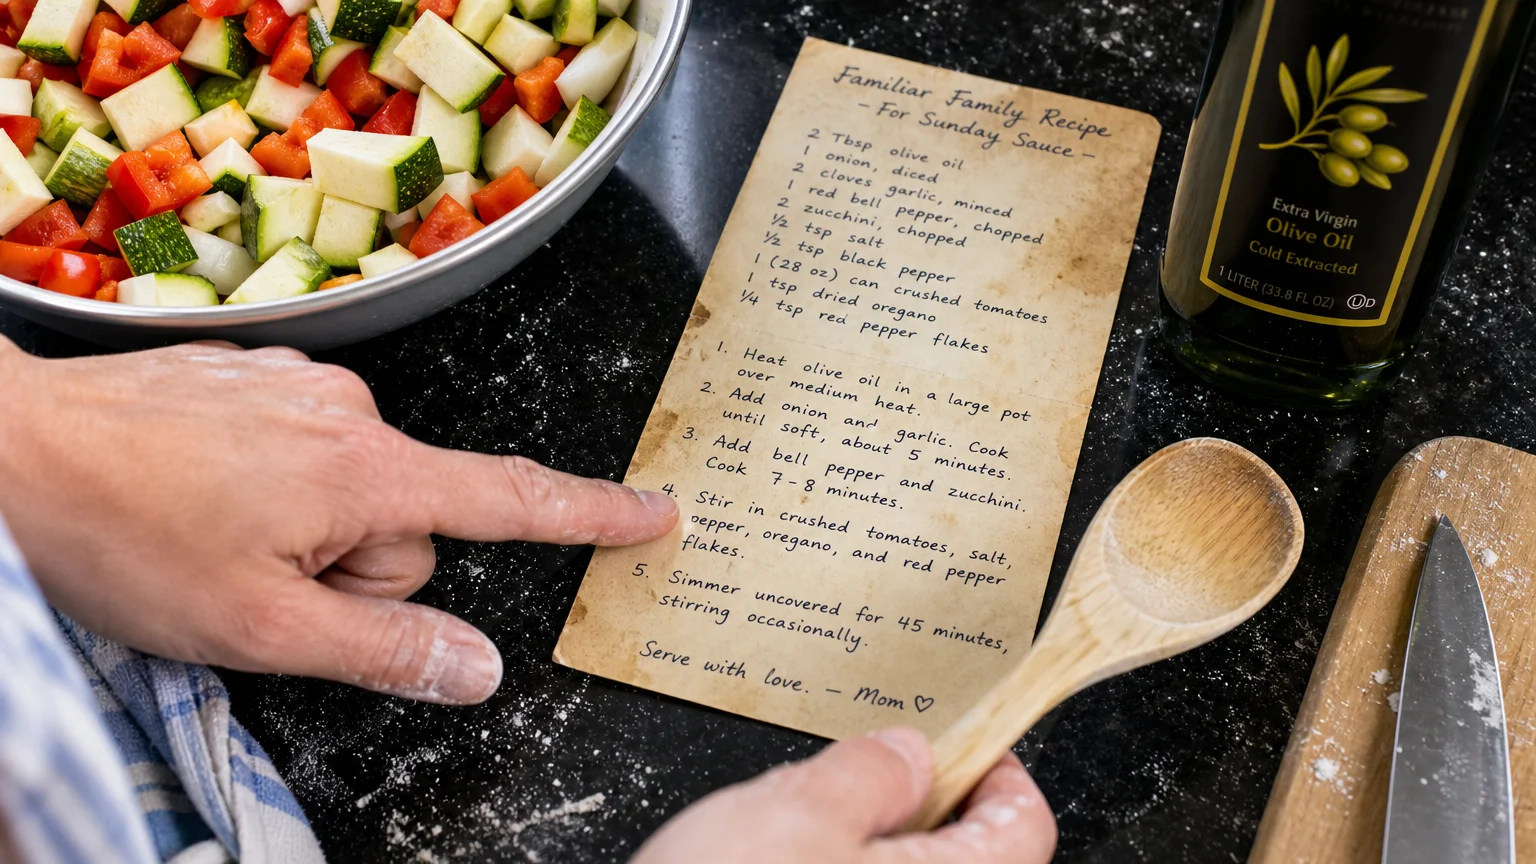 Familiar Family Recipe
- For Sunday Sauce -
2 Tbsp olive oil
1 onion, diced
2 cloves garlic, minced
1 red bell pepper, chopped
2 zucchini, chopped
½ tsp salt
½ tsp black pepper
1 (28 oz) can crushed tomatoes
1 tsp dried oregano
¼ tsp red pepper flakes
1. Heat olive oil in a large pot
over medium heat.
2. Add onion and garlic. Cook
until soft, about 5 minutes.
3. Add bell pepper and zucchini.
Cook 7-8 minutes.
4. Stir in crushed tomatoes, salt,
pepper, oregano, and red pepper
flakes.
5. Simmer uncovered for 45 minutes,
stirring occasionally.
Serve with love. — Mom ♡
Extra Virgin
Olive Oil
Cold Extracted
1 LITER (33.8 FL OZ) ⓊD